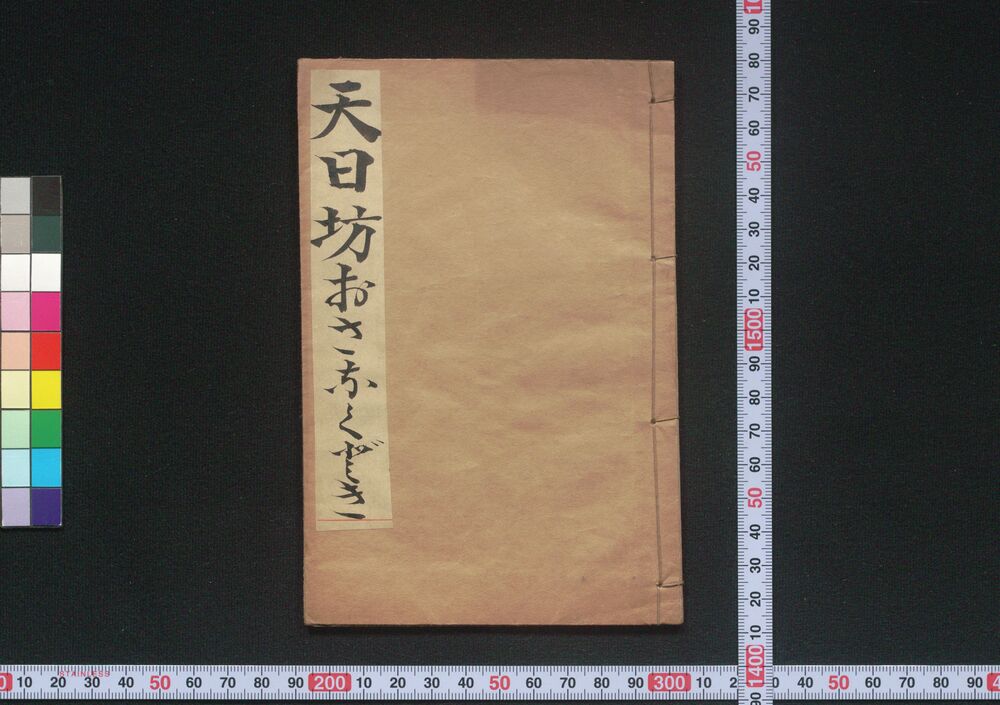 天日坊おさなくどき
90 80 70 60 50 40 30 20 10 1500 90 80 70 60 50 40 30 20 10 1400 90
STAINLESS
10 20 30 40 50 60 70 80 90 200 10 20 30 40 50 60 70 80 90 300 10 30 40 50 60 70 80 90